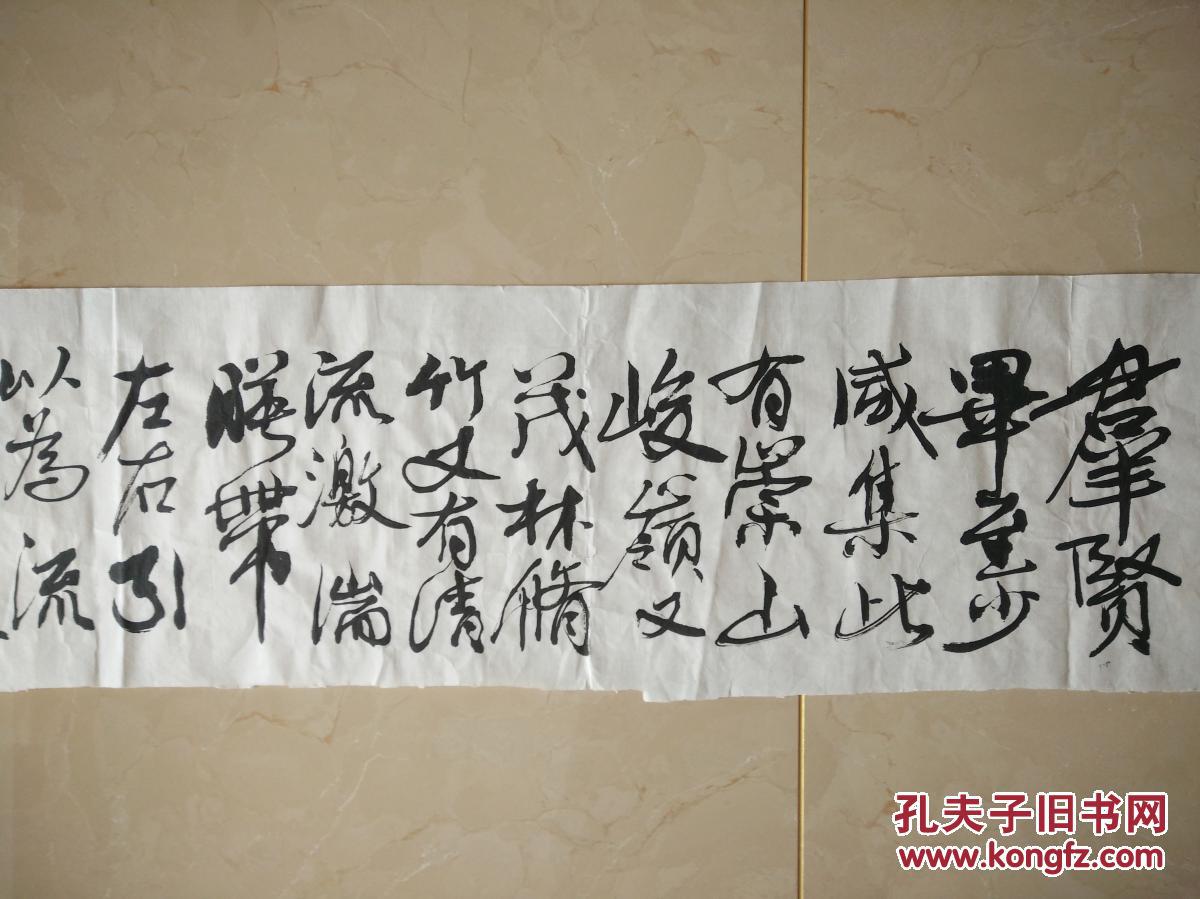 羣賢
畢至少
咸集此
有崇山
峻嶺又
茂林脩
竹又有清
流激湍
暎帶
左右引
以為流
孔夫子旧书网
www.kongfz.com